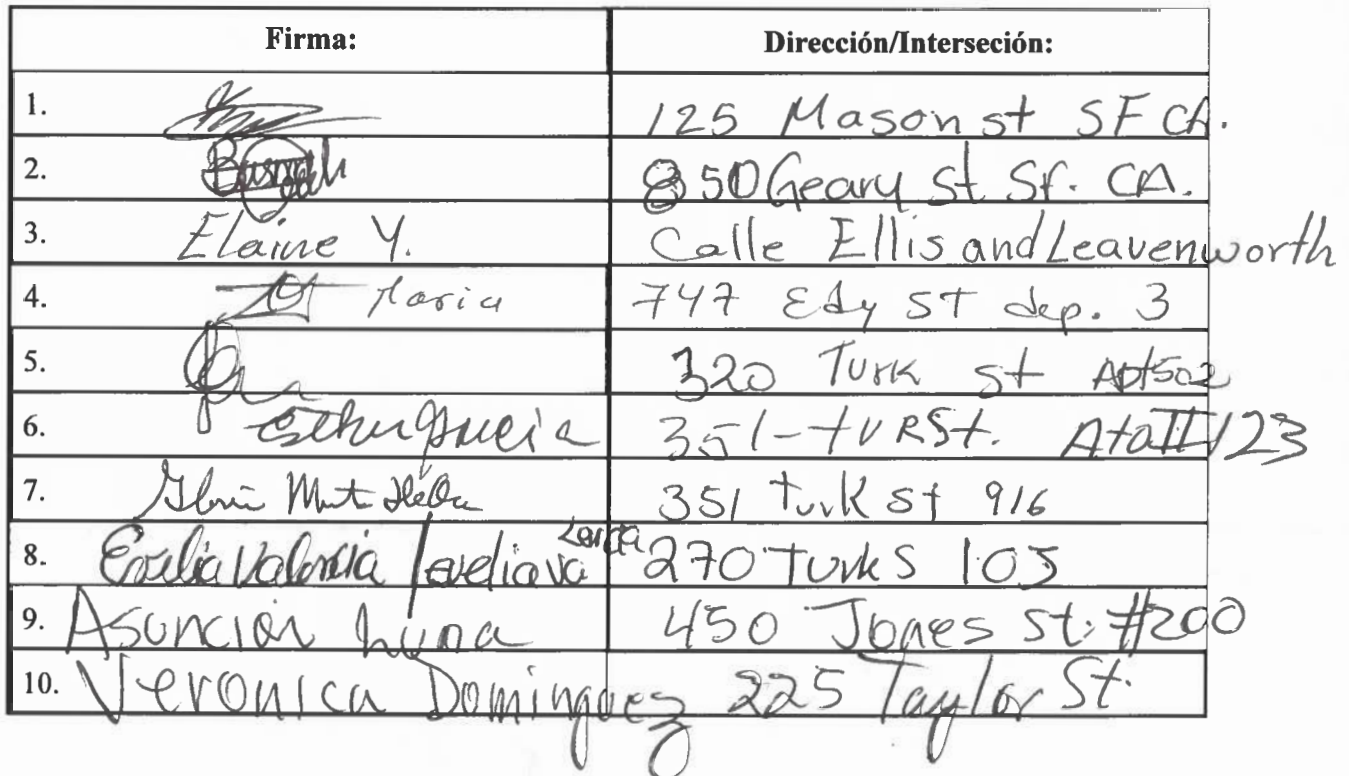 Firma: Dirección/Interseción:
1. 125 Mason st SF CA.
2. 850 Geary St. Sf. CA.
3. Elaine Y. Calle Ellis and Leavenworth
4. Maria 747 Edy ST dep. 3
5. 320 Turk st Apt 502
6. Esther Garcia 351-tURSt. 123
7. 351 turk st 916
8. Evelia Valencia 270 turk S 105
9. Asuncion Luna 450 Jones st. #200
10. Veronica Dominguez 225 Taylor St.